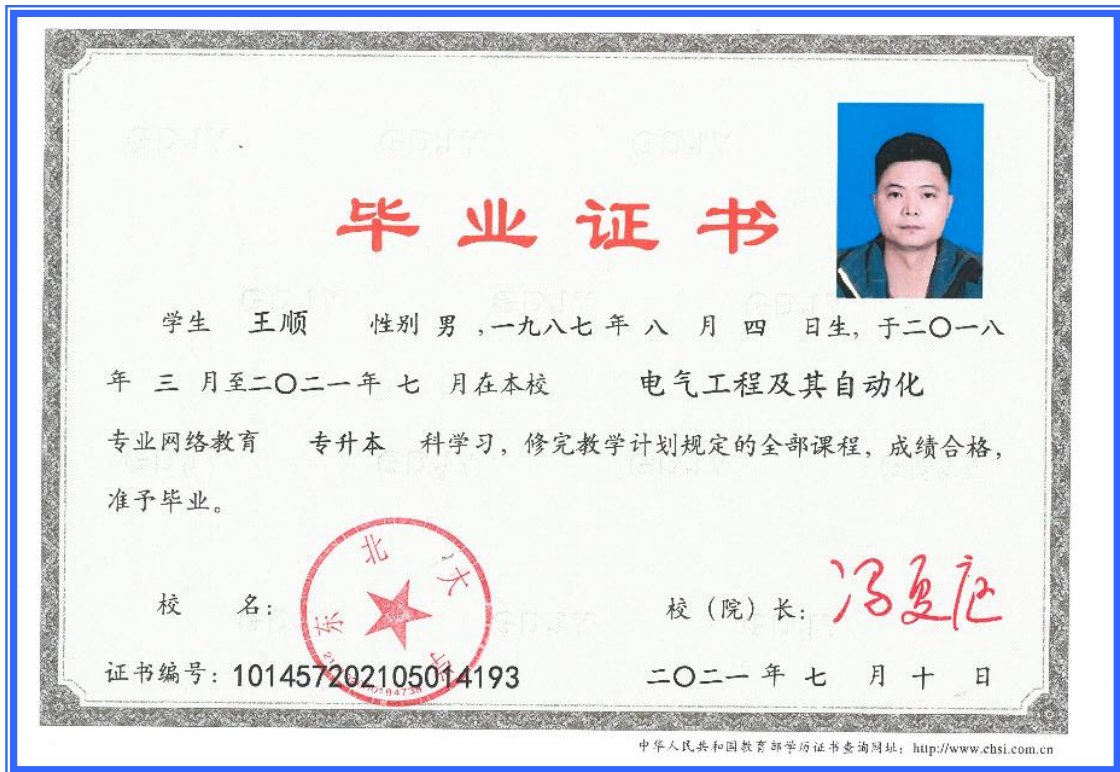 毕业证书
学生 王顺 性别 男 ,一九八七 年 八 月 四 日生, 于二〇一八
年 三 月至二〇二一年 七 月在本校 电气工程及其自动化
专业网络教育 专升本 科学习, 修完教学计划规定的全部课程, 成绩合格,
准予毕业。
东北大学
校 名:
校（院）长: 冯夏庭
证书编号: 101457202105014193
二〇二一 年 七 月 十 日
中华人民共和国教育部学历证书查询网址: http://www.chsi.com.cn